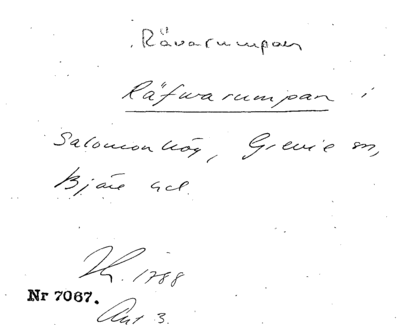 Rävarumpan
Räfwarumpan i
Salomonhög, Grevie sn,
Bjäre hd.
1788
Nr 7067.
Akt 3.